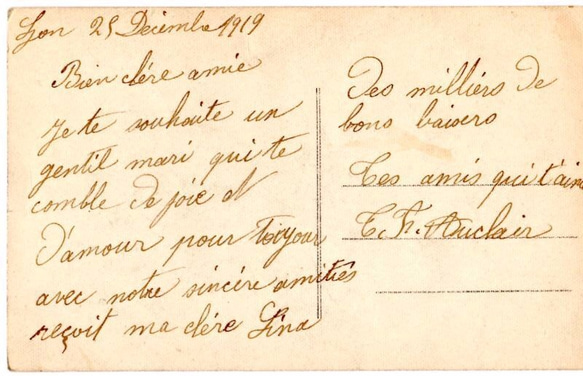 Lyon 25 Décembre 1919
Bien chére amie
Je te souhaite un
gentil mari qui te
comble de joie et
d'amour pour Toujour
avec notre sincére amitiés
reçoit ma chére Lina
Des milliérs de
bons baisers
Tes amis qui t'aime
T. F. Auclair